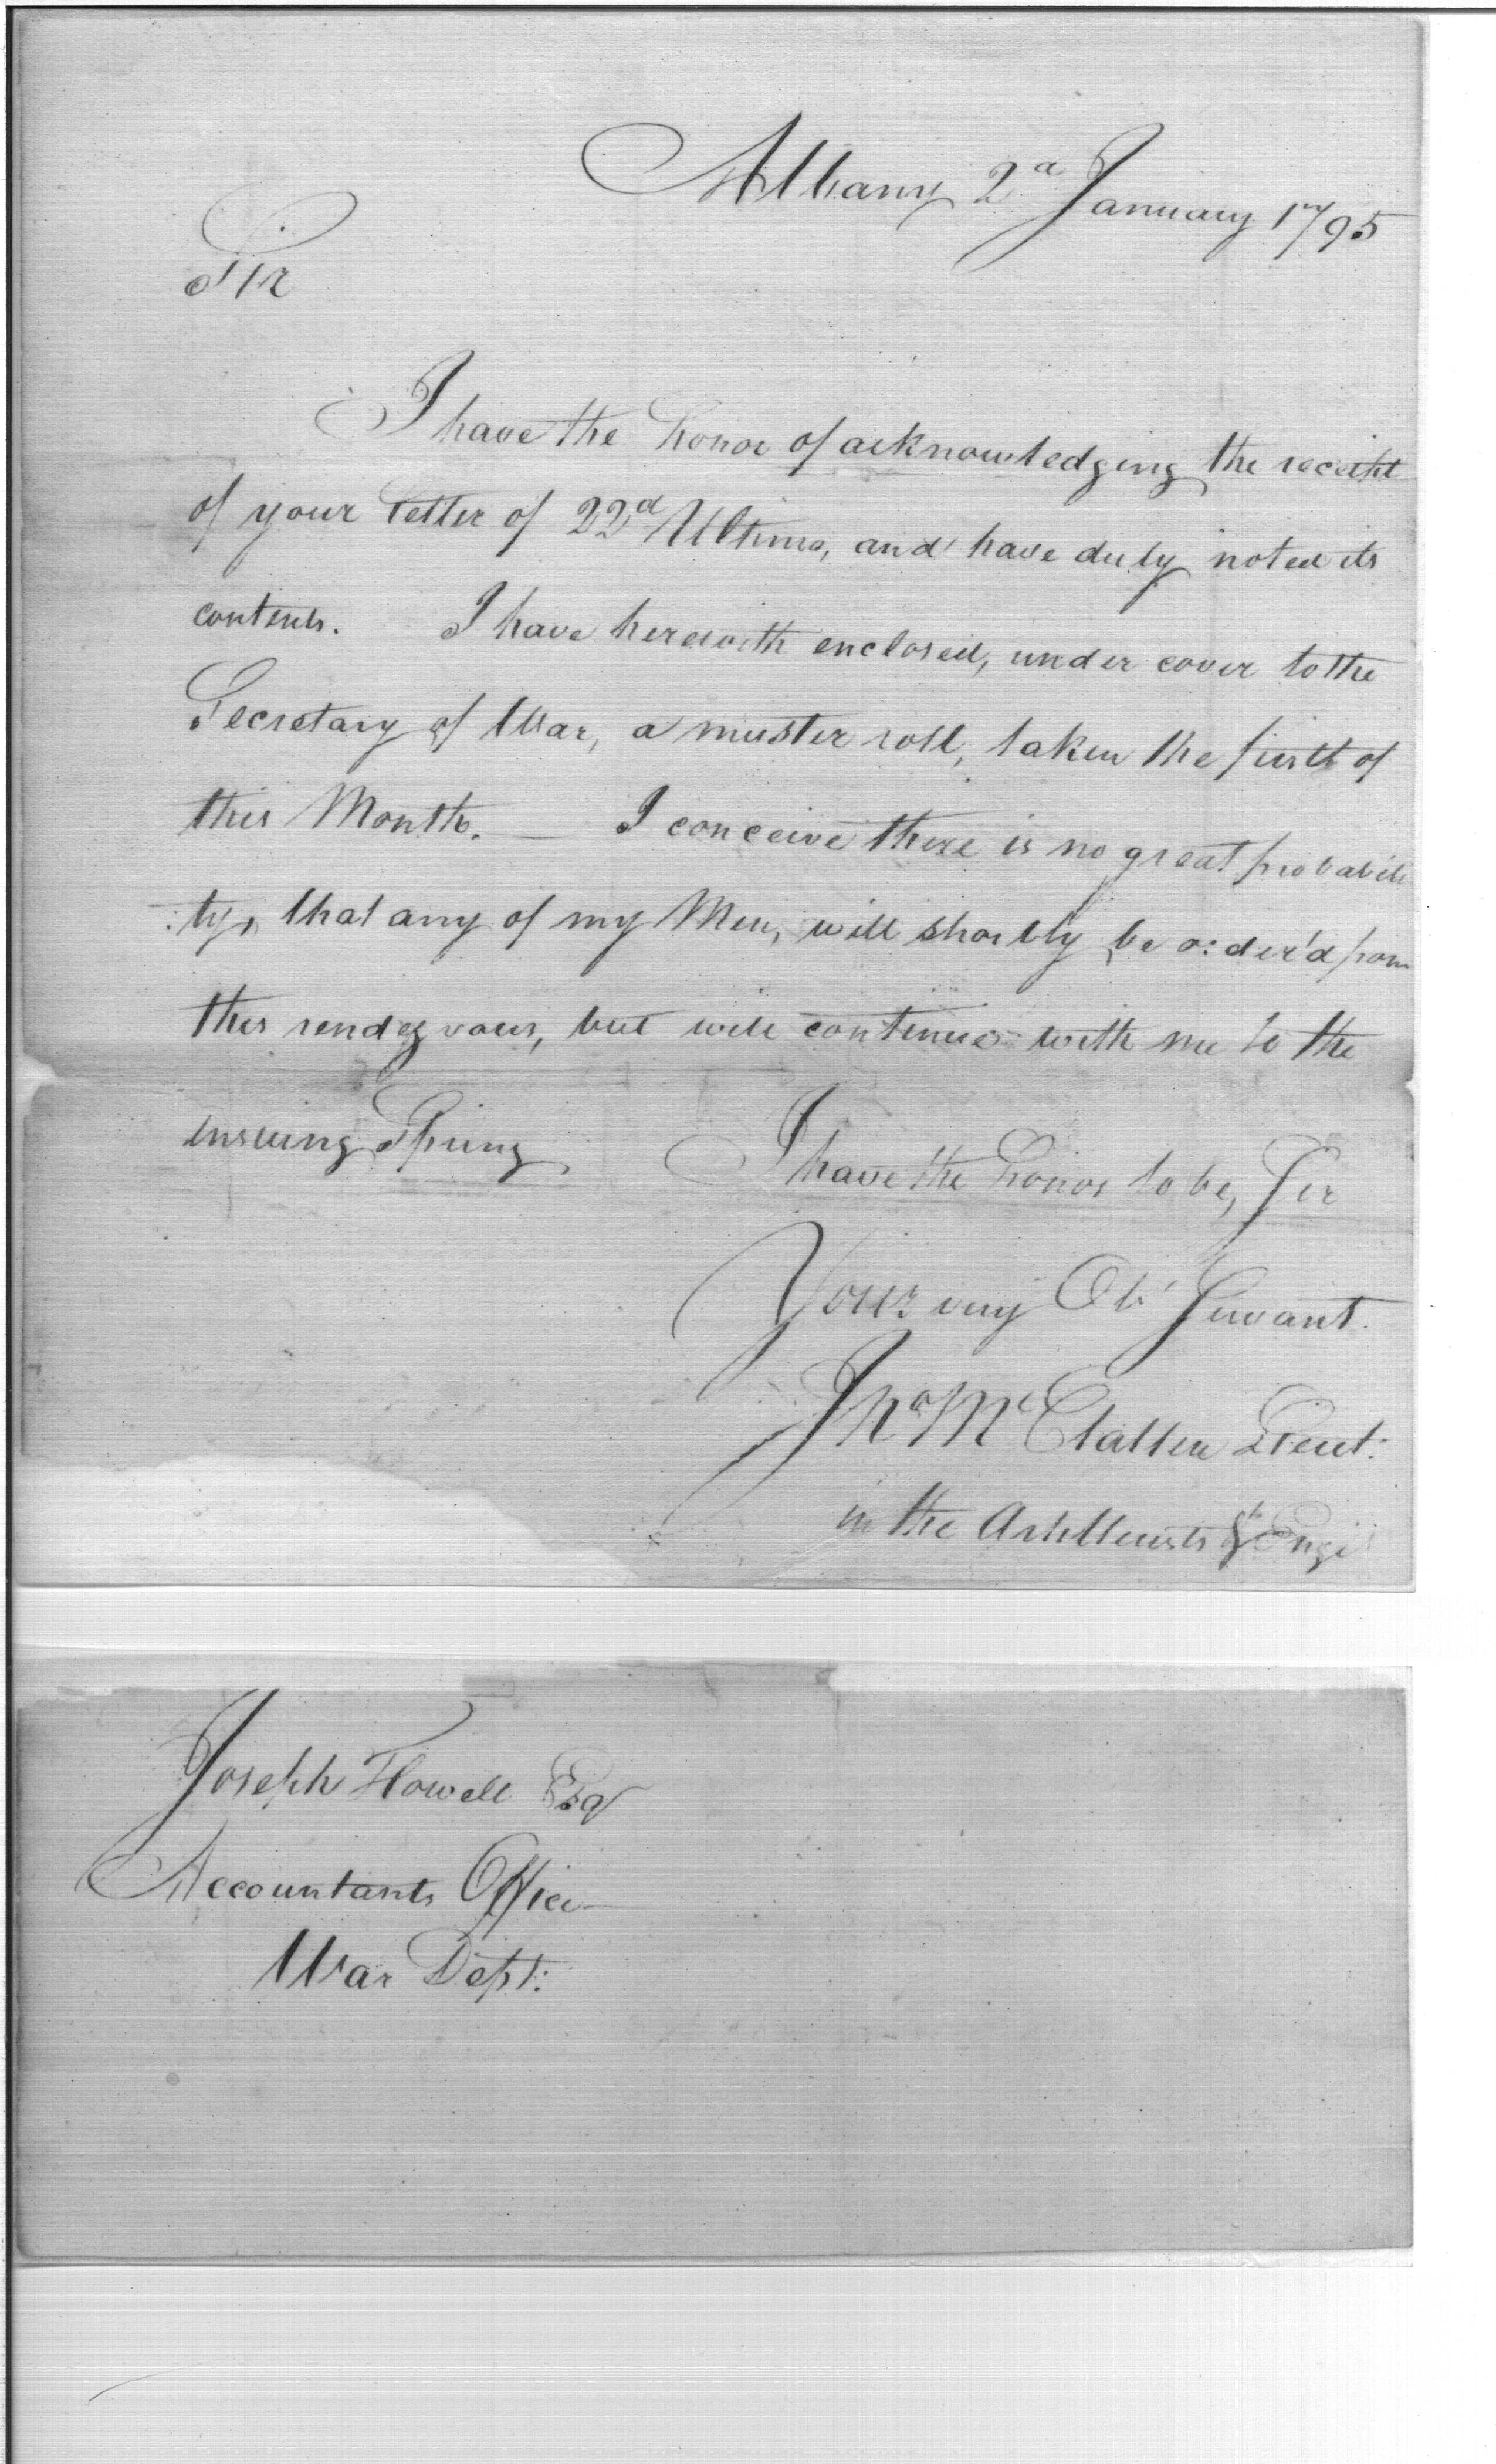 Albany 2d January 1795
Sir
I have the honor of acknowledging the receipt
of your letter of 22d Ultimo, and have duly noted its
contents. I have herewith enclosed, under cover to the
Secretary of War, a muster roll, taken the first of
this Month. — I conceive there is no great probabili
:ty, that any of my Men, will shortly be order'd from
this rendezvous, but will continue with me to the
ensuing Spring.
I have the honor to be, Sir
Your very Obt Servant.
Jno McClallen Lieut:
in the Artillerists & Engi
Joseph Howell Esqr
Accountants Office
War Dept: